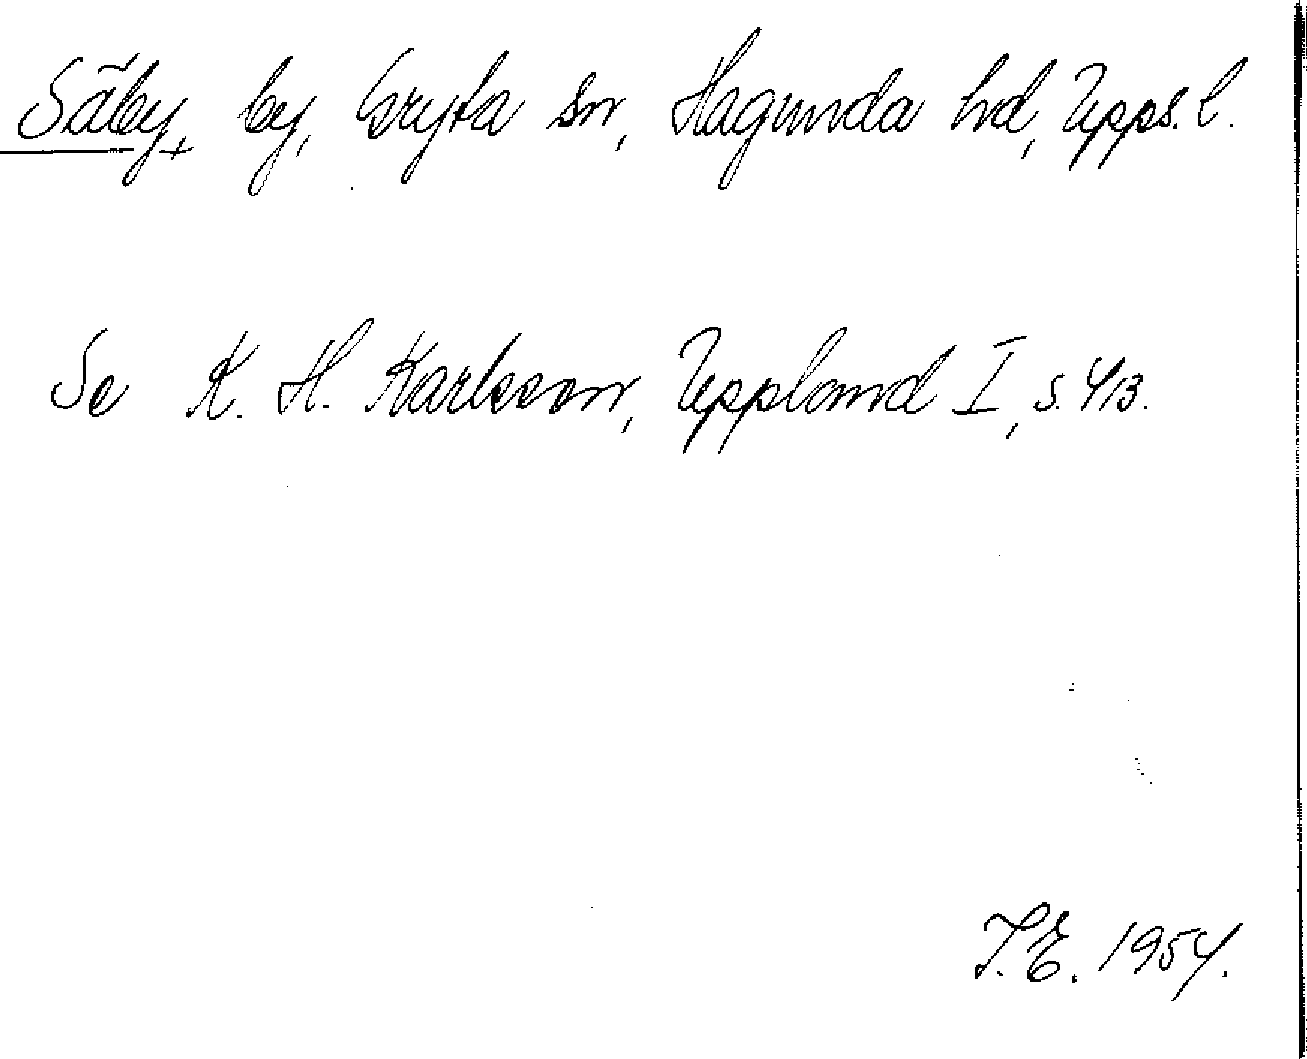 Säby, by, Gryta sn, Hagunda hd, Upps. l.
Se K. H. Karlsson, Uppland I, s. 413.
T.E. 1954.